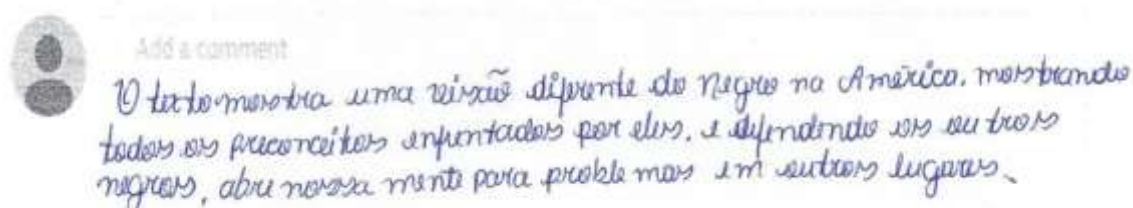 Add a comment
O texto mostra uma visão diferente do negro na América. mostrando
todos os preconceitos enfrentados por eles. e defendendo os outros
negros, abre nossa mente para problemas em outros lugares.